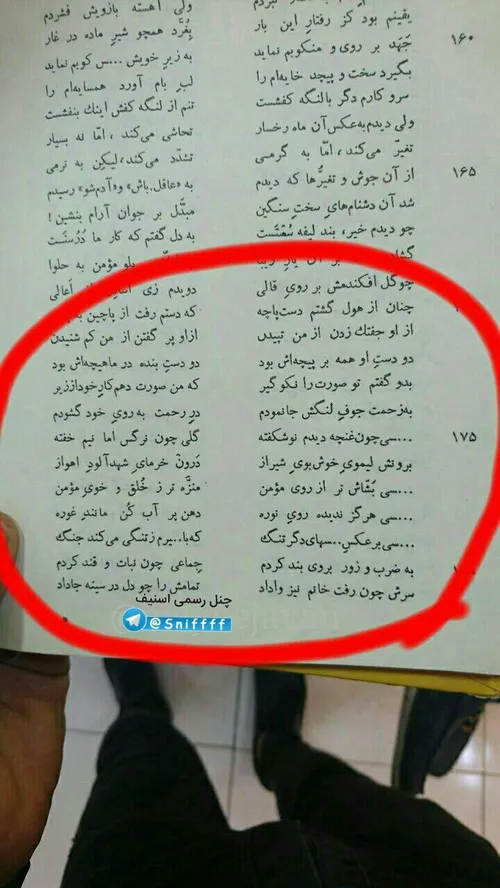 ولی آهسته بازویش فشردم
۱۶۰ یقینم بود کز رفتار این بار بغرّد همچو شیر ماده در غار
جهد بر روی و منکوبم نماید به زیر خویش ...س کوبم نماید
بگیرد سخت و پیچد خایه‌ام را لب بام آورد همسایه‌ام را
سرو کارم دگر بالنگه کفشست تنم از لنگه کفش اینك بنفشست
ولی دیدم به‌عکس آن ماه رخسار تحاشی می‌کند، امّا نه بسیار
۱۶۵ تغیّر می‌کند، امّا به گرمی تشدّد می‌کند، لیکن به نرمی
از آن جوش و تغیّرها که دیدم به «عاقل باش» و «آدم شو» رسیدم
شد آن دشنام‌های سخت سنگین مبدّل بر جوان آرام بنشین !
چو دیدم خیر، بند لیفه سُستست به دل گفتم که کار ما دُرُستست
بر آن یار پلو مؤمن به حلوا
چوگل افکندمش بر روی قالی دویدم زی از اعالی
چنان از هول گشتم دست‌پاچه که دستم رفت از پاچین
از او جفتك زدن از من تپیدن ازاو پر گفتن از من کم شنیدن
دو دست او همه بر پیچه‌اش بود دو دست بنده در ماهیچه‌اش بود
بدو گفتم تو صورت را نکو گیر که من صورت دهم کار خود از زیر
به‌زحمت جوف لنگش جا نمودم در رحمت به روی خود گشودم
۱۷۵ ...سی چون غنچه دیدم نوشکفته گلی چون نرگس اما نیم خفته
برونش لیموی خوش بوی شیراز درون خرمای شهدآلود اهواز
...سی بشّاش تر از روی مؤمن منزّه تر ز خُلق و خوی مؤمن
...سی هرگز ندیده روی نوره دهن پر آب کُن مانند غوره
...سی برعکس ...سهای دگر تنگ که با...یرم ز تنگی می‌کند جنگ
به ضرب و زور بروی بند کردم جماعی چون نبات و قند کردم
سرش چون رفت خانم نیز واداد تمامش را چو دل در سینه جاداد
چنل رسمی اسنیف
@Sniffff